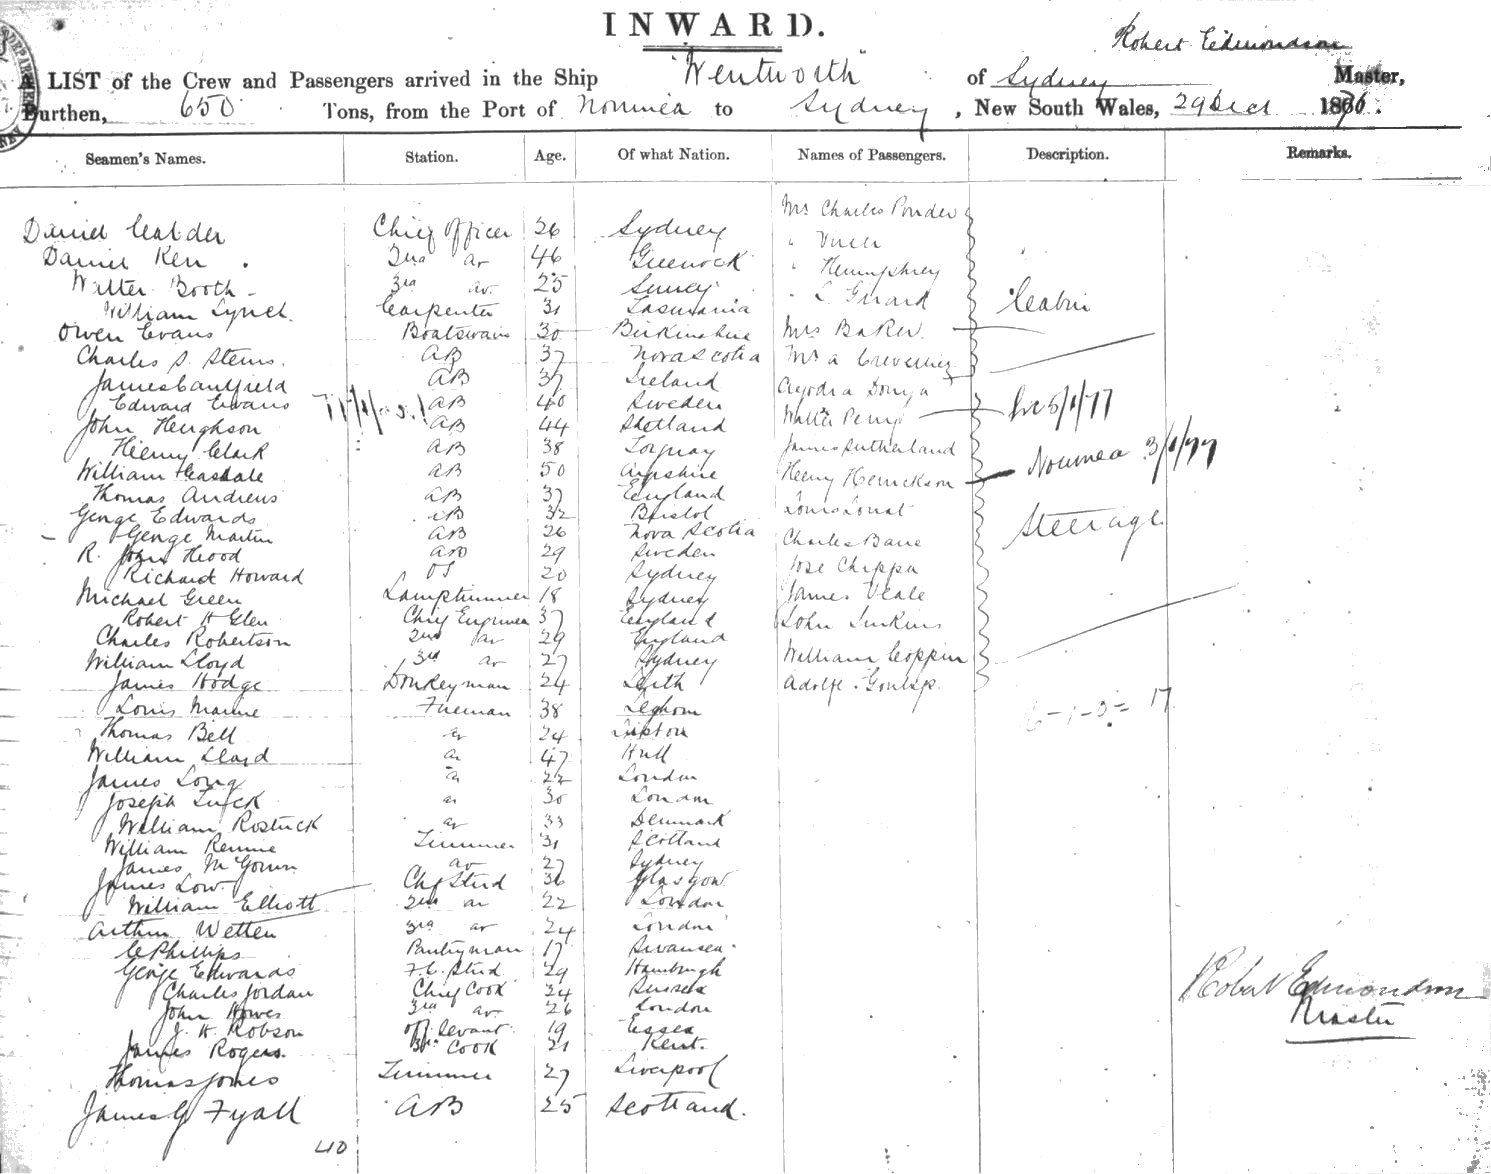 INWARD.
Robert Edmondson
A LIST of the Crew and Passengers arrived in the Ship "Wentworth" of Sydney Master,
Burthen, 650 Tons, from the Port of Noumea to Sydney, New South Wales, 29 Decr 1876.
Seamen's Names. Station. Age. Of what Nation. Names of Passengers. Description. Remarks.
Mr Charles Ponder
Daniel Calder Chief Officer 26 Sydney
Daniel Kerr 2nd do 46 Greenock " Humphrey
Walter Booth 3rd do 25 Surrey " L. Girard Cabin
William Lynch Carpenter 31 Tasmania
Owen Evans Boatswain 30 Birkinshire Mrs Baker
Charles S. Sterns. AB 37 Nova Scotia Mr A
James Caulfield AB 37 Ireland
Edward Evans AB 40 Sweden Walter Perry 5/1/77
John Heughson AB 44 Shetland James Sutherland
Henry Clark AB 38 Torquay Noumea 3/1/77
William Heasdale AB 50 Ayrshire Henry Henrickson
Thomas Andrews AB 37 England
George Edwards AB 32 Bristol Steerage
George Martin AB 26 Nova Scotia Charles Bane
R. John Hood AB 29 Sweden Jose Chippa
Richard Howard OS 20 Sydney James Veale
Michael Green Lamptrimmer 18 Sydney
Robert H Glen Chief Engineer 37 England John Jenkins
Charles Robertson 2nd do 29 England
William Lloyd 3rd do 27 Sydney William Coppin
James Hodge Donkeyman 24 Leith Adolfe
Louis Marine Fireman 38 Leghorn
Thomas Bell do 24 Tipton
William Lloyd do 47 Hull
James Long do 22 London
Joseph Tuck do 30 London
William Rostuck do 33 Denmark
William Rennie Trimmer 31 Scotland
James McGowan do 27 Sydney
James Low Chf Stud 36 Glasgow
William Elliott 2nd do 22 London
Arthur Wetten 3rd do 24 London
C Phillips Pantryman 17 Swansea
George Edwards F.C. Stud 29 Hamburgh
Charles Jordan Chief Cook 34 Sussex
John Howes 3rd do 26 London
J. H. Robson Off. Sevant 19 Essex
James Rogers. 3rd Cook 21 Kent.
Thomas Jones Trimmer 27 Liverpool
James G Fyall AB 25 Scotland.
40
Robert Edmondson
Master